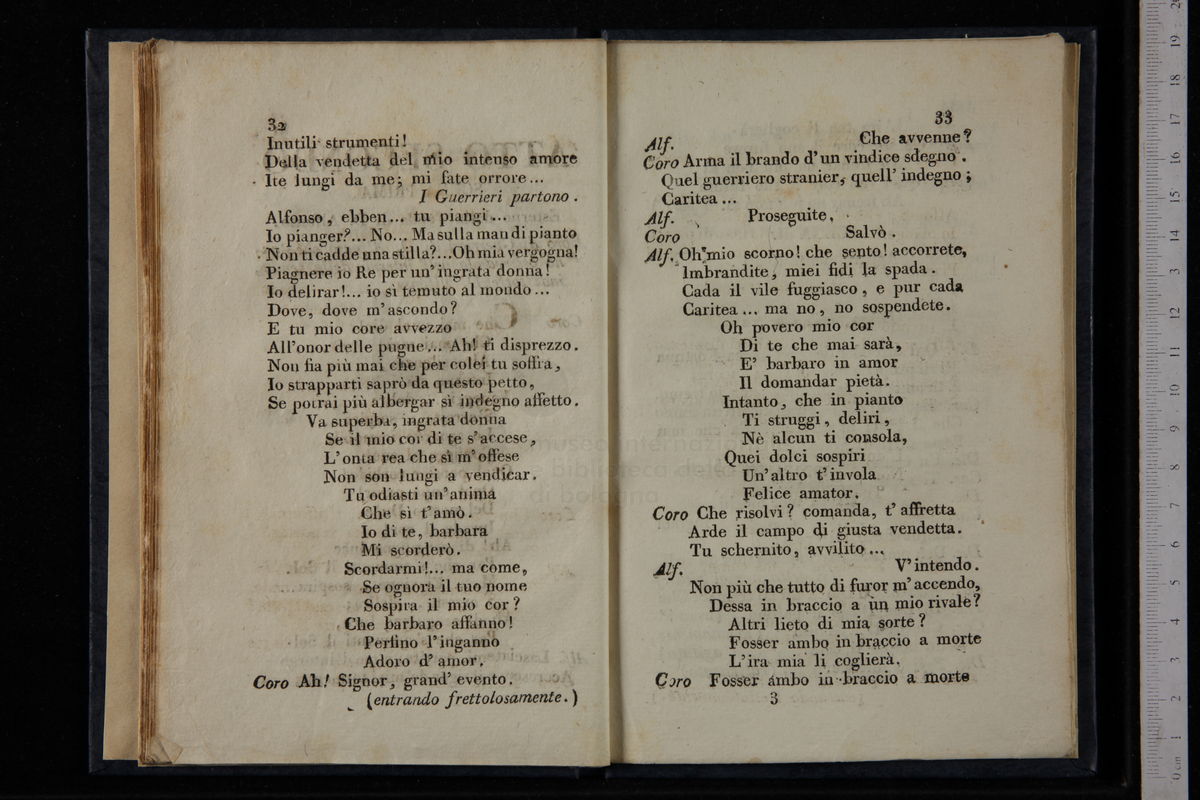 32
Inutili strumenti!
Della vendetta del mio intenso amore
Ite lungi da me; mi fate orrore...
I Guerrieri partono.
Alfonso, ebben... tu piangi...
Io pianger?... No... Ma sulla man di pianto
Non ti cadde una stilla?... Oh mia vergogna!
Piagnere io Re per un' ingrata donna!
Io delirar!... io sì temuto al mondo...
Dove, dove m' ascondo?
E tu mio core avvezzo
All'onor delle pugne... Ah! ti disprezzo.
Non fia più mai che per colei tu soffra,
Io strapparti saprò da questo petto,
Se potrai più albergar sì indegno affetto.
Va superba, ingrata donna
Se il mio cor di te s' accese,
L' onta rea che sì m' offese
Non son lungi a vendicar.
Tu odiasti un' anima
Che sì t' amò.
Io di te, barbara
Mi scorderò.
Scordarmi!... ma come,
Se ognora il tuo nome
Sospira il mio cor?
Che barbaro affanno!
Perfino l' inganno
Adoro d' amor.
Coro Ah! Signor, grand' evento.
(entrando frettolosamente.)
33
Alf. Che avvenne?
Coro Arma il brando d' un vindice sdegno.
Quel guerriero stranier, quell' indegno;
Caritea...
Alf. Proseguite.
Coro Salvò.
Alf. Oh mio scorno! che sento! accorrete,
Imbrandite, miei fidi la spada.
Cada il vile fuggiasco, e pur cada
Caritea... ma no, no sospendete.
Oh povero mio cor
Di te che mai sarà,
E' barbaro in amor
Il domandar pietà.
Intanto, che in pianto
Ti struggi, deliri,
Nè alcun ti consola,
Quei dolci sospiri
Un' altro t' invola
Felice amator.
Coro Che risolvi? comanda, t' affretta
Arde il campo di giusta vendetta.
Tu schernito, avvilito...
Alf. V' intendo.
Non più che tutto di furor m' accendo,
Dessa in braccio a un mio rivale?
Altri lieto di mia sorte?
Fosser ambo in braccio a morte
L' ira mia li coglierà.
Coro Fosser ambo in braccio a morte
3